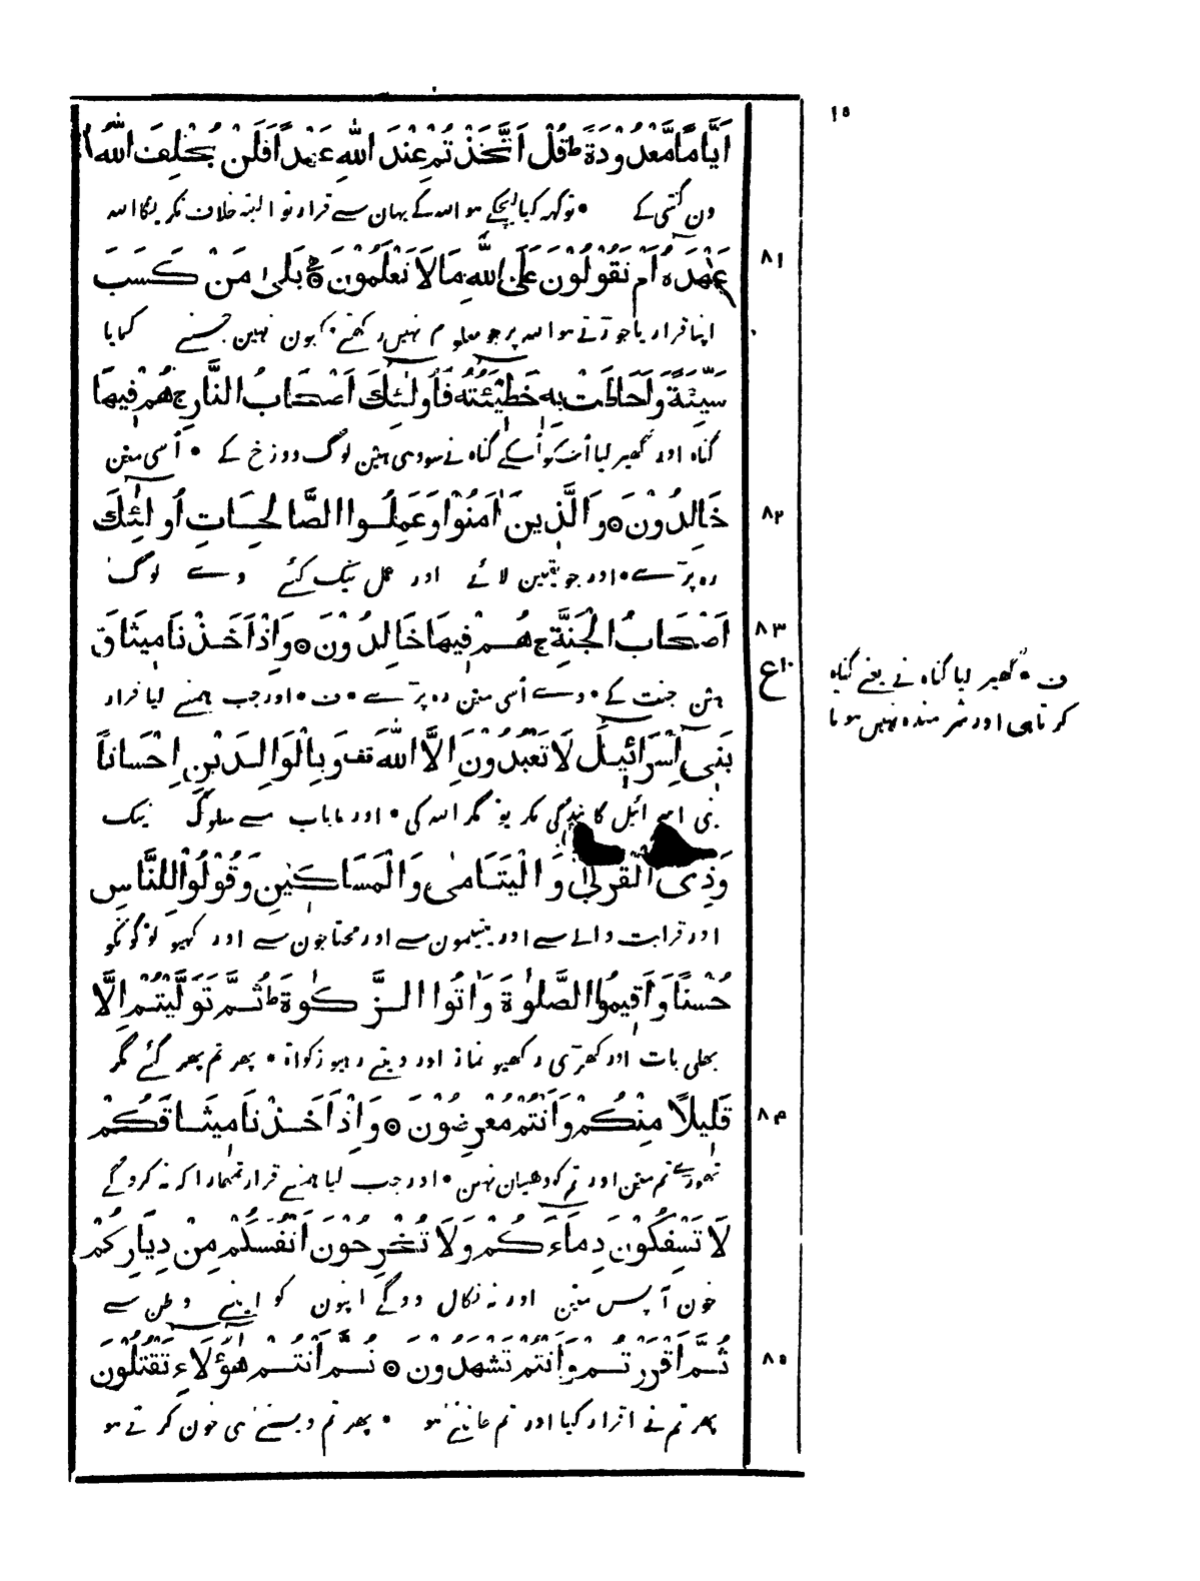 ١٥
اَيَّامًا مَّعْدُوْدَةً ط قُلْ اَتَّخَذْتُمْ عِنْدَ اللهِ عَهْدًا فَلَنْ يُخْلِفَ اللهُ
دن گنتی کے • تو کہہ کیا لیچکے ہو الله کے یہان سے قرار تو البتہ خلاف نکریگا الله
عَهْدَهُ اَمْ تَقُوْلُوْنَ عَلَى اللهِ مَا لَا تَعْلَمُوْنَ ۞ بَلٰى مَنْ كَسَبَ ٨١
اپنا قرار یا جوڑتے ہو الله پر جو معلوم نہیں رکھتے • کیون نہین جسنے کمایا
سَيِّئَةً وَّاَحَاطَتْ بِهٖ خَطِيْٓئَتُهُ فَاُولٰٓئِكَ اَصْحَابُ النَّارِ ج هُمْ فِيْهَا
گناہ اور گھیر لیا اُسکو اُسکے گناہ نے سو وہی ہین لوگ دوزخ کے • اُسی مین
خَالِدُوْنَ ۞ وَالَّذِيْنَ اٰمَنُوْا وَعَمِلُوا الصَّالِحَاتِ اُولٰٓئِكَ ٨٢
رہ پڑے • اور جو یقین لائے اور عمل نیک کئے وے لوگ
اَصْحَابُ الْجَنَّةِ ج هُمْ فِيْهَا خَالِدُوْنَ ۞ وَاِذْ اَخَذْنَا مِيْثَاقَ ٨٣
ہین جنت کے • وے اُسی مین رہ پڑے • ف • اور جب ہمنے لیا قرار ع ١٠
ف • گھیر لیا گناہ نے یعنے گناہ
کرتا ہی اور شرمندہ نہیں ہوتا
بَنِيْٓ اِسْرَآئِيْلَ لَا تَعْبُدُوْنَ اِلَّا اللهَ قف وَبِالْوَالِدَيْنِ اِحْسَانًا
بنی اسرائیل کا بندگی نکریو مگر الله کی • اور ماباپ سے سلوک نیک
وَذِى الْقُرْبٰى وَالْيَتَامٰى وَالْمَسَاكِيْنِ وَقُوْلُوْا لِلنَّاسِ
اور قرابت والے سے اور یتیمون سے اور محتاجون سے اور کہیو لوگونکو
حُسْنًا وَاَقِيْمُوا الصَّلٰوةَ وَاٰتُوا الزَّكٰوةَ ط ثُمَّ تَوَلَّيْتُمْ اِلَّا
بھلی بات اور کھڑی رکھیو نماز اور دیتے رہیو زکواة • پھر تم پھر گئے مگر
قَلِيْلًا مِنْكُمْ وَاَنْتُمْ مُعْرِضُوْنَ ۞ وَاِذْ اَخَذْنَا مِيْثَاقَكُمْ ٨٤
تھوڑے تم مین اور تم کو دھیان نہین • اور جب لیا ہمنے قرار تمہارا کہ نہ کروگے
لَا تَسْفِكُوْنَ دِمَآءَكُمْ وَلَا تُخْرِجُوْنَ اَنْفُسَكُمْ مِنْ دِيَارِكُمْ
خون آپس مین اور نہ نکال دوگے اپنون کو اپنے وطن سے
ثُمَّ اَقْرَرْتُمْ وَاَنْتُمْ تَشْهَدُوْنَ ۞ ثُمَّ اَنْتُمْ هٰٓؤُلَآءِ تَقْتُلُوْنَ ٨٥
پھر تم نے اقرار کیا اور تم جانتے ہو • پھر تم ویسے ہی خون کرتے ہو